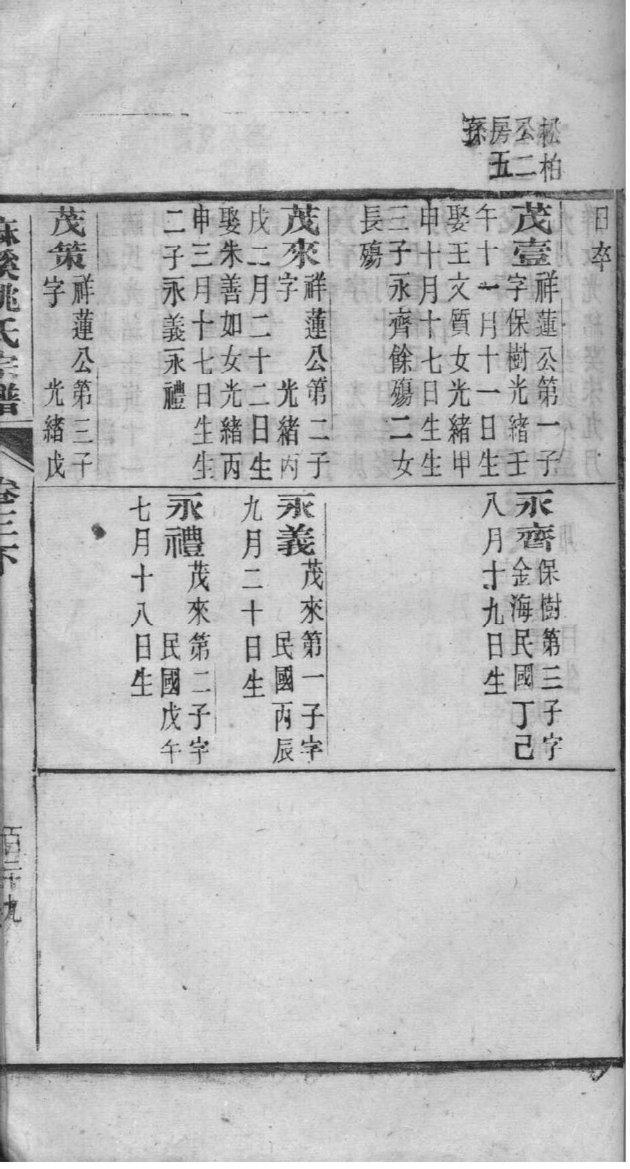 松柏
公二
房五
孫
日卒
茂壹祥蓮公第一子
字保樹光緒壬
午十一月十一日生
娶王文質女光緒甲
申十月十七日生生
三子永齊餘殤二女
長殤
茂來祥蓮公第二子
字　光緒丙
戌二月二十二日生
娶朱善如女光緒丙
申三月十七日生生
二子永義永禮
茂策祥蓮公第三子
字　光緒戊
永齊保樹第三子字
金海民國丁己
八月十九日生
永義茂來第一子字
民國丙辰
九月二十日生
永禮茂來第二子字
民國戊午
七月十八日生
麻溪姚氏宗譜
卷三下
百三十九